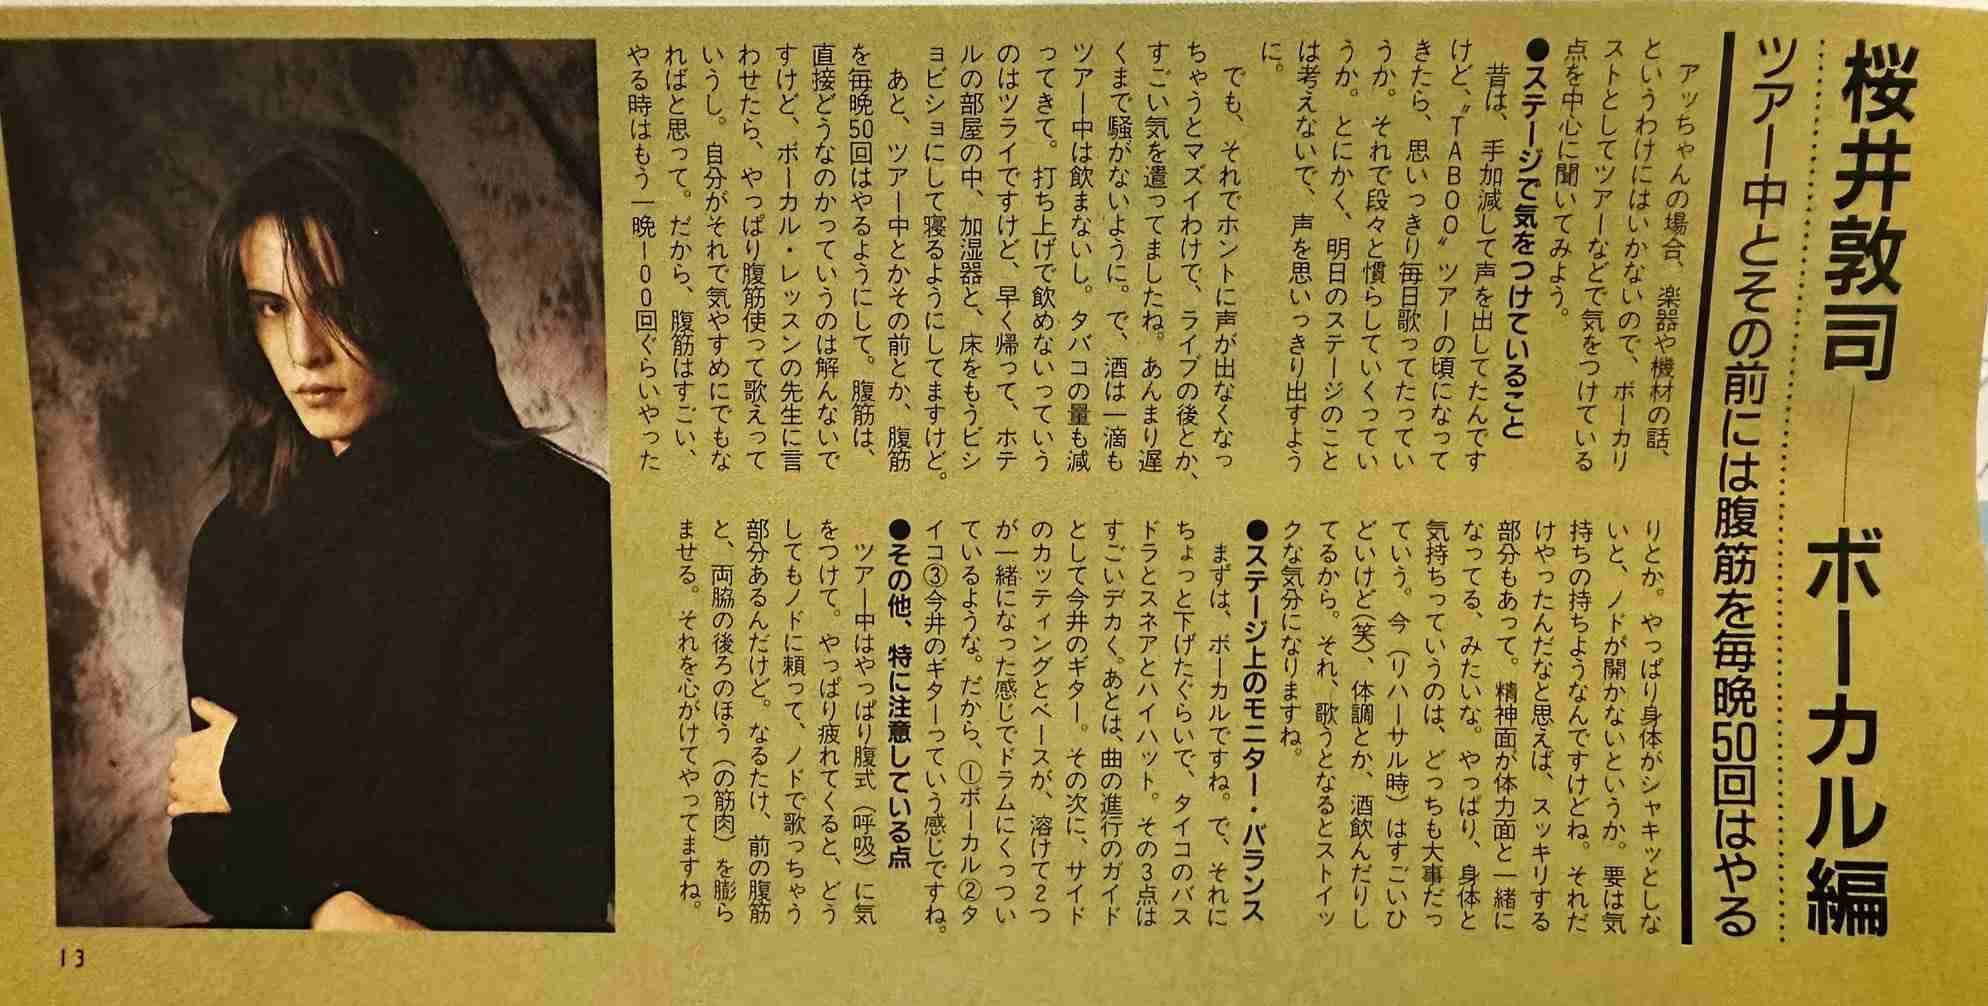 桜井敦司――ボーカル編
ツアー中とその前には腹筋を毎晩50回はやる
アッちゃんの場合、楽器や機材の話、
というわけにはいかないので、ボーカリ
ストとしてツアーなどで気をつけている
点を中心に聞いてみよう。
●ステージで気をつけていること
昔は、手加減して声を出してたんです
けど、〝TABOO〟ツアーの頃になって
きたら、思いっきり毎日歌ってたってい
うか。それで段々と慣らしていくってい
うか。とにかく、明日のステージのこと
は考えないで、声を思いっきり出すよう
に。
でも、それでホントに声が出なくなっ
ちゃうとマズイわけで、ライブの後とか、
すごい気を遣ってましたね。あんまり遅
くまで騒がないように。で、酒は一滴も
ツアー中は飲まないし。タバコの量も減
ってきて。打ち上げで飲めないっていう
のはツライですけど、早く帰って、ホテ
ルの部屋の中、加湿器と、床をもうビシ
ョビショにして寝るようにしてますけど。
あと、ツアー中とかその前とか、腹筋
を毎晩50回はやるようにして。腹筋は、
直接どうなのかっていうのは解んないで
すけど、ボーカル・レッスンの先生に言
わせたら、やっぱり腹筋使って歌えって
いうし。自分がそれで気やすめにでもな
ればと思って。だから、腹筋はすごい、
やる時はもう一晩100回ぐらいやった
りとか。やっぱり身体がシャキッとしな
いと、ノドが開かないというか。要は気
持ちの持ちようなんですけどね。それだ
けやったんだなと思えば、スッキリする
部分もあって。精神面が体力面と一緒に
なってる、みたいな。やっぱり、身体と
気持ちっていうのは、どっちも大事だっ
ていう。今(リハーサル時)はすごいひ
どいけど(笑)、体調とか、酒飲んだりし
てるから。それ、歌うとなるとストイッ
クな気分になりますね。
●ステージ上のモニター・バランス
まずは、ボーカルですね。で、それに
ちょっと下げたぐらいで、タイコのバス
ドラとスネアとハイハット。その3点は
すごいデカく。あとは、曲の進行のガイド
として今井のギター。その次に、サイド
のカッティングとベースが、溶けて2つ
が一緒になった感じでドラムにくっつい
ているような。だから、①ボーカル②タ
イコ③今井のギターっていう感じですね。
●その他、特に注意している点
ツアー中はやっぱり腹式(呼吸)に気
をつけて。やっぱり疲れてくると、どう
してもノドに頼って、ノドで歌っちゃう
部分あるんだけど。なるたけ、前の腹筋
と、両脇の後ろのほう(の筋肉)を膨ら
ませる。それを心がけてやってますね。
13